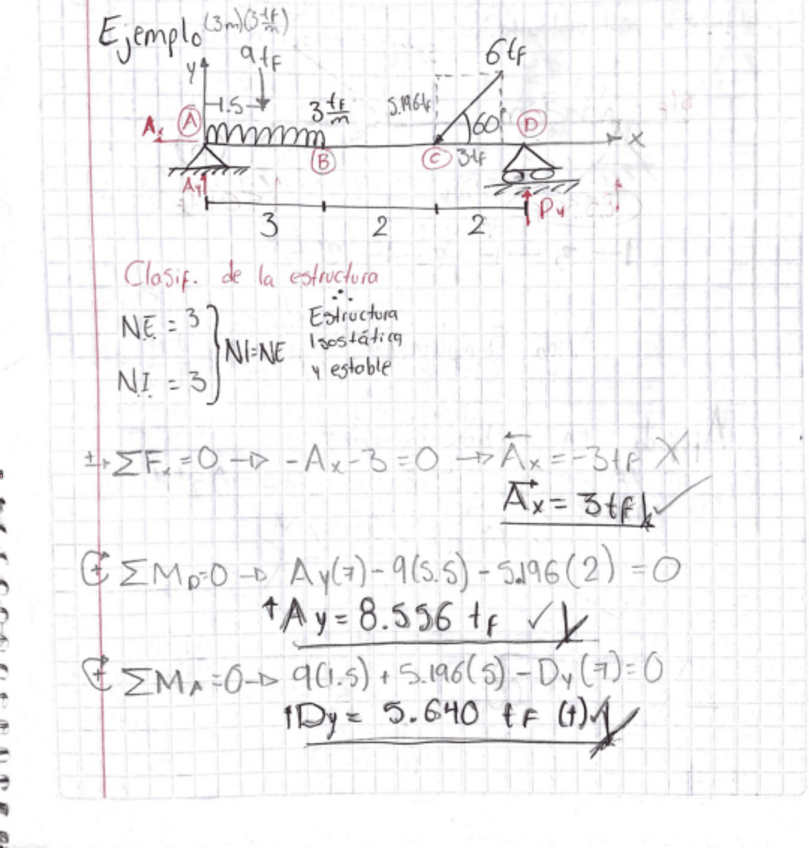 Ejemplo (3m)(3 tf/m)
9 tf
6 tf
y
1.5
3 tf/m
5.196 tf
60°
Ax
A
B
C
3 tf
D
x
Ay
Dy
3 2 2
Clasif. de la estructura
NE = 3
NI = 3
NI=NE
∴
Estructura
Isostática
y estable
ΣFx=0 → -Ax-3=0 → Ax=-3tf X
Ax = 3tf ✓
ΣMD=0 → Ay(7)-9(5.5)-5.196(2)=0
↑Ay=8.556 tf ✓
ΣMA=0→ 9(1.5)+5.196(5)-Dy(7)=0
↑Dy= 5.640 tf (↑)